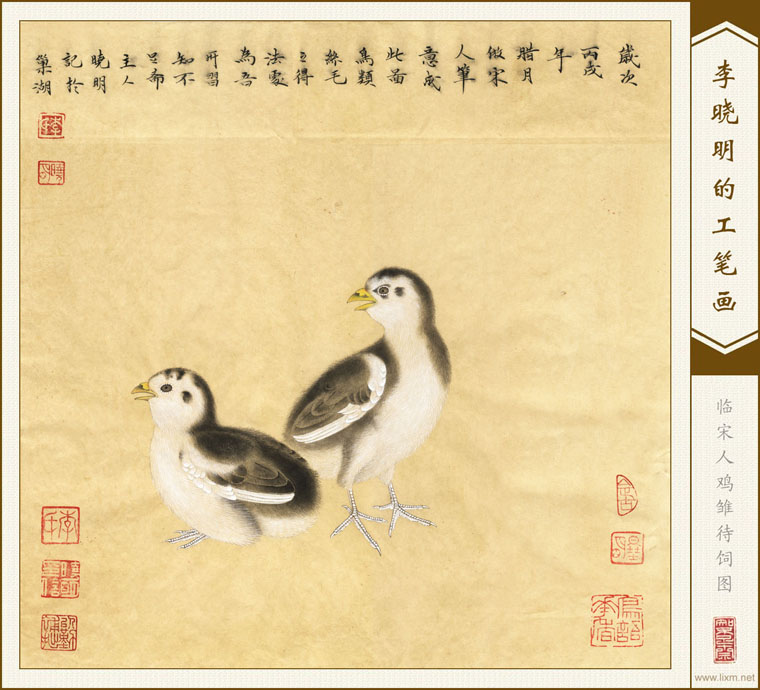 歲次
丙戌
年
腊月
倣宋
人筆
意成
此啚
鳥類
絲毛
之得
法處
為吾
所習
知不
足齋
主人
曉明
記於
巢湖
李晓明的工笔画
临宋人鸡雏待饲图
www.lixm.net